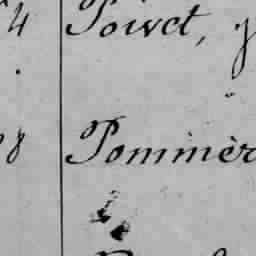 4 Poivet,
8 Pommièr